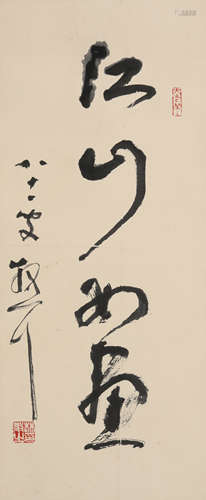 江山如画
八十二叟散耳